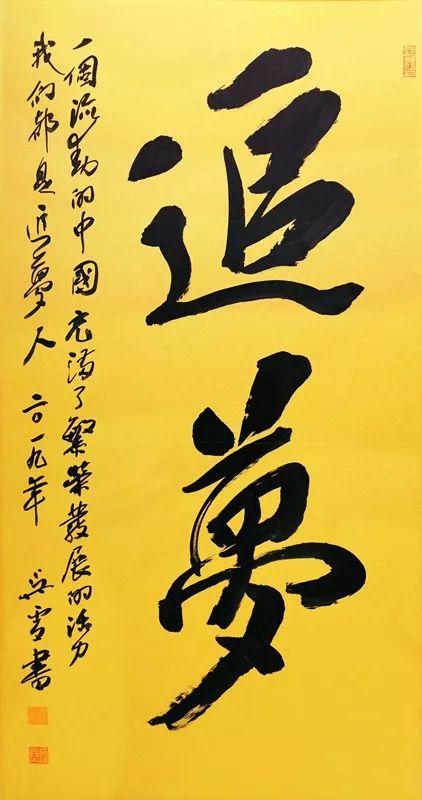 追夢
一個流動的中國充滿了繁榮發展的活力
我们都是追夢人 二〇一九年 吳雪書